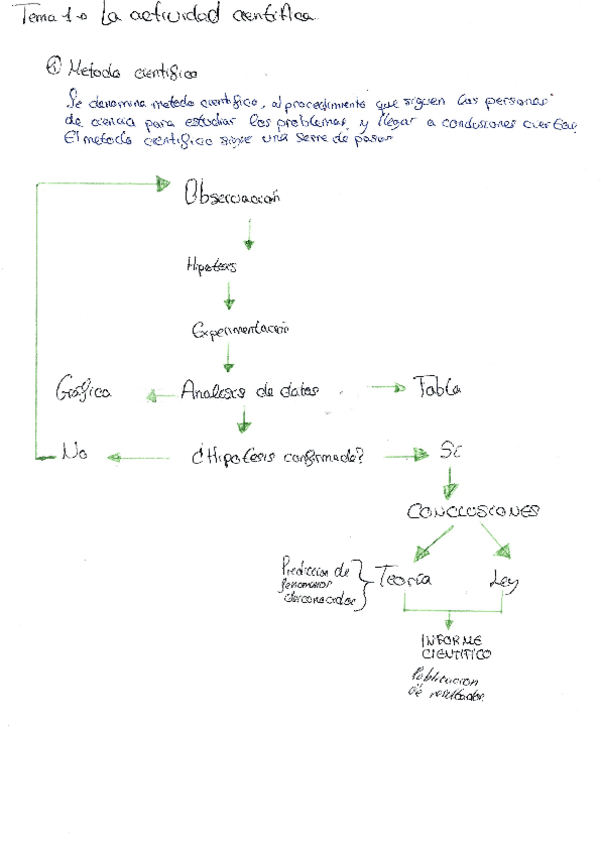 Tema 1.- La actividad científica.
① Metodo científico
Se denomina metodo científico, al procedimiento que siguen las personas
de ciencia para estudiar los problemas y llegar a conclusiones ciertas.
El metodo científico sigue una serie de pasos
Observación
Hipotesis
Experimentación
Gráfica
Analisis de datos
Tabla
No
¿Hipotesis confirmada?
Sí
CONCLUSIONES
Predicción de
fenomenos
desconocidos
Teoría
Ley
INFORME
CIENTIFICO
Publicacion
de resultados